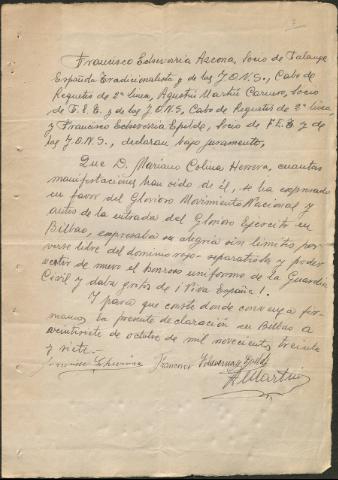 Francisco Echevarria Azcona, Socio de Falange
Española Tradicionalista y de las J.O.N.S., Cabo de
Requetes de 2ª linea, Agustin Martin Caruso, socio
de F.E.E. y de las J.O.N.S, Cabo de Requetes de 2ª linea,
y Francisco Echevarria Epelde, socio de F.E.E y de
las J.O.N.S., declaran bajo juramento,
Que D. Mariano Colina Herrera, cuantas
manifestaciones han oido de él, se ha expresado
en favor del Glorioso Movimiento Nacional y
antes de la entrada del Glorioso Ejercito en
Bilbao, expresaba su alegria sin limite por
verse libre del dominio rojo-separatista y poder
vestir de nuevo el honroso uniforme de la Guardia
Civil y daba gritos de ¡Viva España!
Y para que conste donde convenga fir-
mamos la presente declaración en Bilbao a
veintisiete de octubre de mil novecientos treinta
y siete.-
Francisco Echevarria Francisco Echevarria Epelde
A Martin